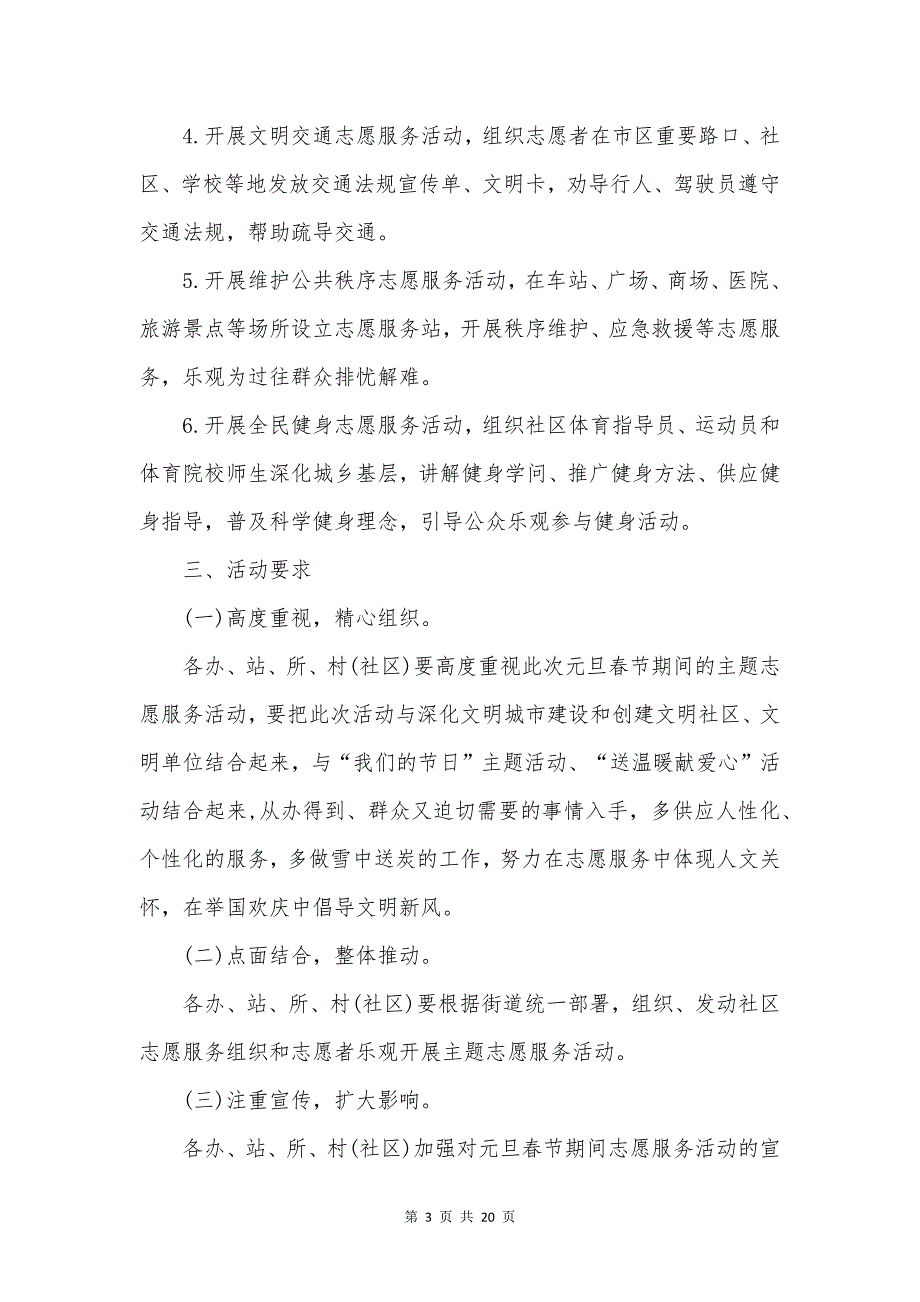 4.开展文明交通志愿服务活动，组织志愿者在市区重要路口、社
区、学校等地发放交通法规宣传单、文明卡，劝导行人、驾驶员遵守
交通法规，帮助疏导交通。
5.开展维护公共秩序志愿服务活动，在车站、广场、商场、医院、
旅游景点等场所设立志愿服务站，开展秩序维护、应急救援等志愿服
务，乐观为过往群众排忧解难。
6.开展全民健身志愿服务活动，组织社区体育指导员、运动员和
体育院校师生深化城乡基层，讲解健身学问、推广健身方法、供应健
身指导，普及科学健身理念，引导公众乐观参与健身活动。
三、活动要求
(一)高度重视，精心组织。
各办、站、所、村(社区)要高度重视此次元旦春节期间的主题志
愿服务活动，要把此次活动与深化文明城市建设和创建文明社区、文
明单位结合起来，与“我们的节日”主题活动、“送温暖献爱心”活
动结合起来,从办得到、群众又迫切需要的事情入手，多供应人性化、
个性化的服务，多做雪中送炭的工作，努力在志愿服务中体现人文关
怀，在举国欢庆中倡导文明新风。
(二)点面结合，整体推动。
各办、站、所、村(社区)要根据街道统一部署，组织、发动社区
志愿服务组织和志愿者乐观开展主题志愿服务活动。
(三)注重宣传，扩大影响。
各办、站、所、村(社区)加强对元旦春节期间志愿服务活动的宣
第 3 页 共 20 页